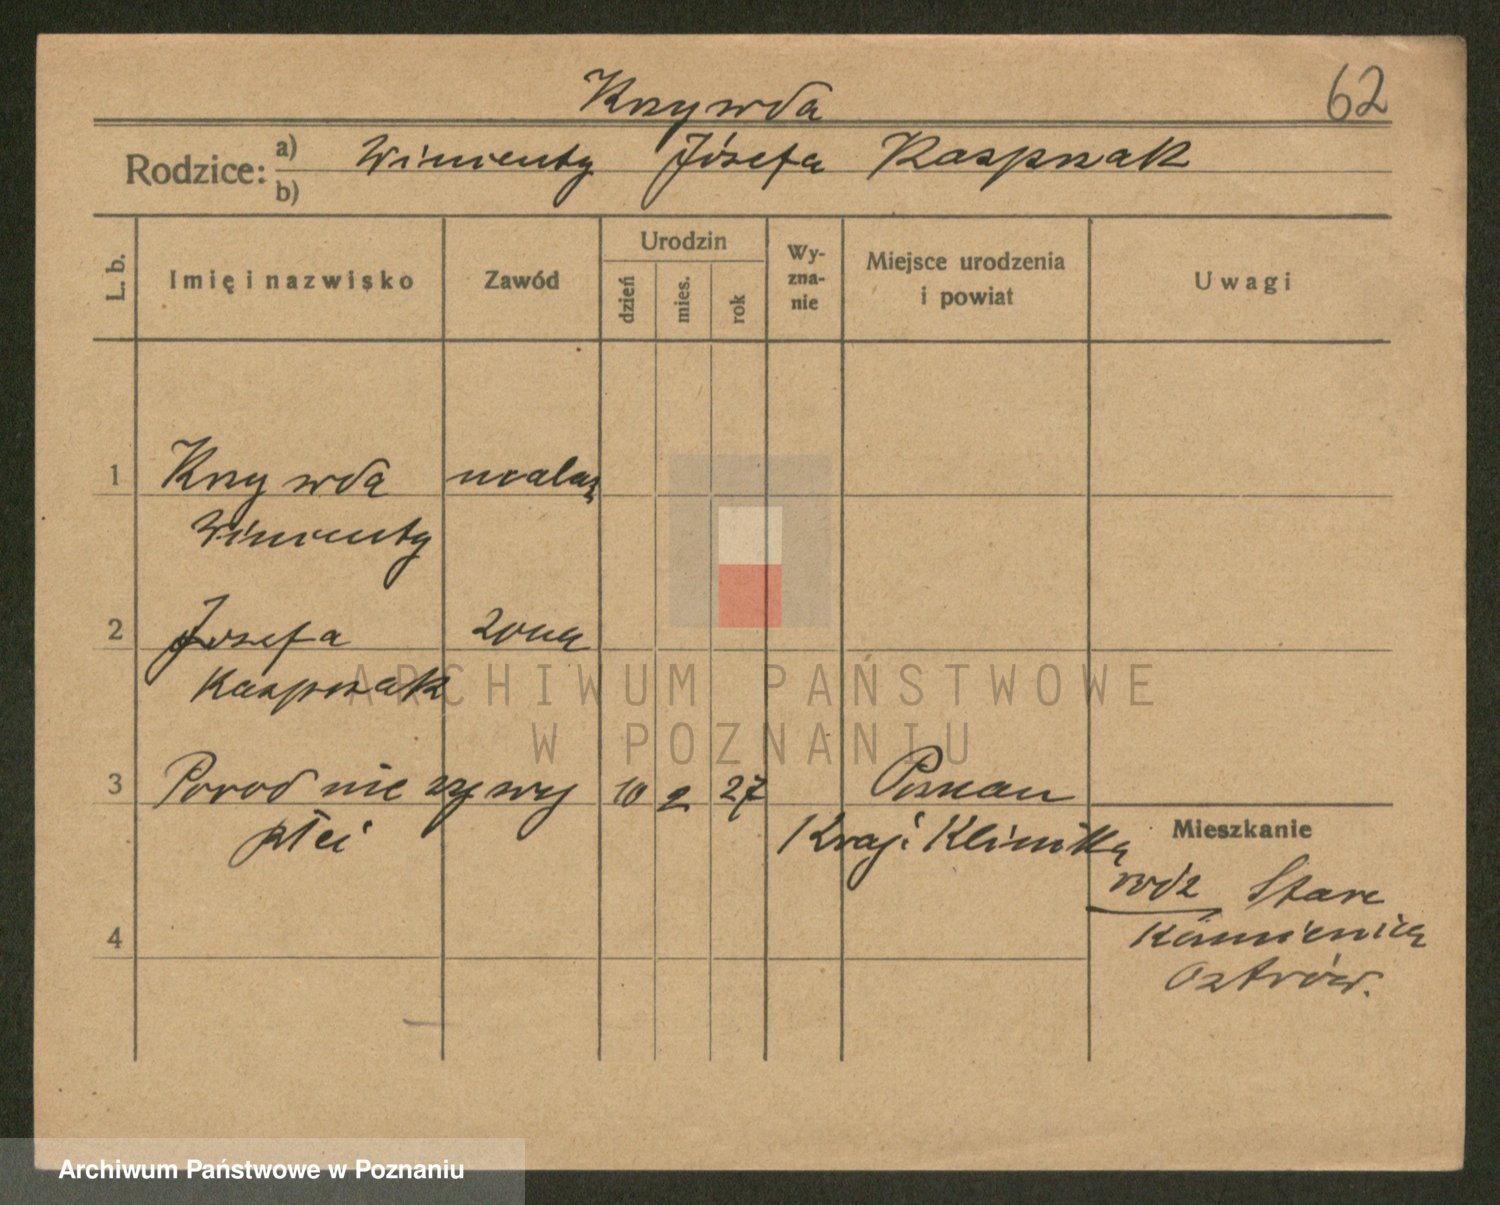 Krzywda
62
Rodzice: a) Wincenty Józefa Kasprzak
b)
L. b.
Imię i nazwisko
Zawód
Urodzin
dzień
mies.
rok
Wy-
zna-
nie
Miejsce urodzenia
i powiat
Uwagi
1 Krzywda malarz
Wincenty
2 Józefa żona
Kasprzak
3 Porod nie żywy 10 2 27 Poznan
płci Kraj. Klinika
Mieszkanie
rodz Stare
Kamienice
Ostrów.
4
ARCHIWUM PAŃSTWOWE
W POZNANIU
Archiwum Państwowe w Poznaniu